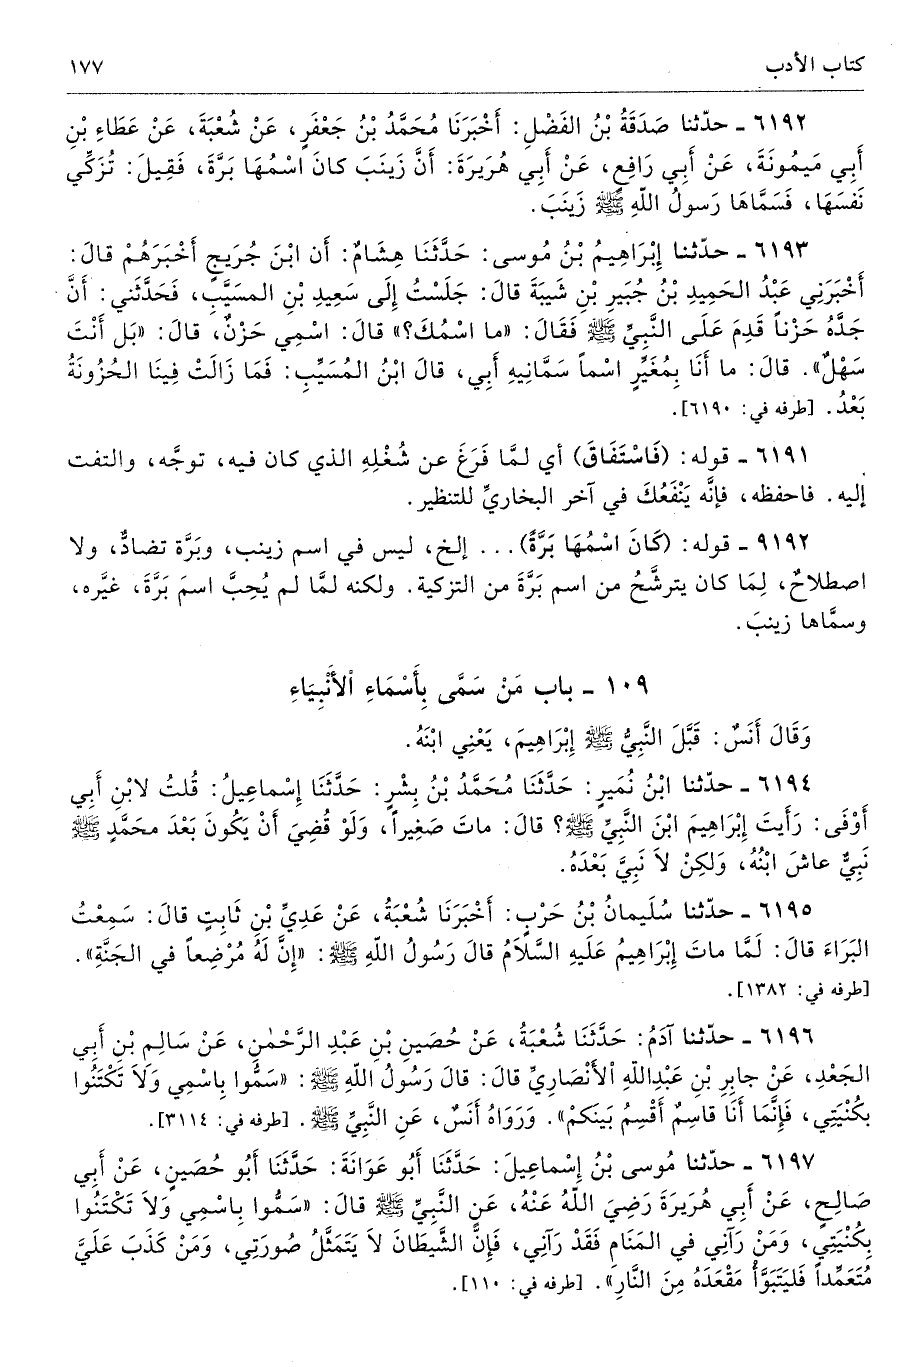 كتاب الأدب ١٧٧
٦١٩٢ ـ حدّثنا صَدَقَةُ بْنُ الفَضْلِ: أَخْبَرَنَا مُحَمَّدُ بْنُ جَعْفَرٍ، عَنْ شُعْبَةَ، عَنْ عَطَاءِ بْنِ
أَبِي مَيمُونَةَ، عَنْ أَبِي رَافِعٍ، عَنْ أَبِي هُرَيرَةَ: أَنَّ زَينَبَ كانَ اسْمُهَا بَرَّةَ، فَقِيلَ: تُزَكِّي
نَفسَهَا، فَسَمَّاهَا رَسولُ اللّهِ ﷺ زَينَبَ.
٦١٩٣ ـ حدّثنا إِبْرَاهِيمُ بْنُ مُوسى: حَدَّثَنَا هِشَامٌ: أَن ابْنَ جُرَيجٍ أَخْبَرَهُمْ قالَ:
أَخْبَرَنِي عَبْدُ الحَمِيدِ بْنُ جُبَيرِ بْنِ شَيبَةَ قالَ: جَلَسْتُ إِلَى سَعِيدِ بْنِ المسَيَّبِ، فَحَدَّثَني: أَنَّ
جَدَّهُ حَزْناً قَدِمَ عَلَى النَّبِيِّ ﷺ فَقَالَ: «ما اسْمُكَ؟» قالَ: اسْمِي حَزْنٌ، قالَ: «بَل أَنْتَ
سَهْلٌ». قالَ: ما أَنَا بِمُغَيِّرٍ اسْماً سَمَّانِيهِ أَبِي، قالَ ابْنُ المُسَيِّبِ: فَمَا زَالَتْ فِينَا الحُزُونَةُ
بَعْدُ. [طرفه في: ٦١٩٠].
٦١٩١ ـ قوله: (فَاسْتَفَاقَ) أي لمَّا فَرَغَ عن شُغْلِهِ الذي كان فيه، توجَّه، والتفت
إليه. فاحفظه، فإنَّه يَنْفَعُكَ في آخر البخاريِّ للتنظير.
٩١٩٢ ـ قوله: (كَانَ اسْمُهَا بَرَّةً)... إلخ، ليس في اسم زينب، وبَرَّة تضادٌّ، ولا
اصطلاحٌ، لِمَا كان يترشَّحُ من اسم بَرَّةَ من التزكية. ولكنه لمَّا لم يُحِبَّ اسمَ بَرَّةَ، غيَّره،
وسمَّاها زينبَ.
١٠٩ ـ باب مَنْ سَمَّى بِأَسْمَاءِ الأَنْبِيَاءِ
وَقَالَ أَنَسٌ: قَبَّلَ النَّبِيُّ ﷺ إِبْرَاهِيمَ، يَعْنِي ابْنَهُ.
٦١٩٤ ـ حدّثنا ابْنُ نُمَيرٍ: حَدَّثَنَا مُحَمَّدُ بْنُ بِشْرٍ: حَدَّثَنَا إِسْماعِيلُ: قُلتُ لابْنِ أَبِي
أَوْفَى: رَأَيتَ إِبْرَاهِيمَ ابْنَ النَّبِيِّ ﷺ؟ قالَ: ماتَ صَغِيراً، وَلَوْ قُضِيَ أَنْ يَكُونَ بَعْدَ محَمَّدٍ ﷺ
نَبِيٌّ عاشَ ابْنُهُ، وَلكِنْ لاَ نَبِيَّ بَعْدَهُ.
٦١٩٥ ـ حدّثنا سُلَيمانُ بْنُ حَرْبٍ: أَخْبَرَنَا شُعْبَةُ، عَنْ عَدِيِّ بْنِ ثَابِتٍ قالَ: سَمِعْتُ
البَرَاءَ قالَ: لَمَّا ماتَ إِبْرَاهِيمُ عَلَيهِ السَّلاَمُ قالَ رَسُولُ اللّهِ ﷺ: «إِنَّ لَهُ مُرْضِعاً في الجَنَّةِ».
[طرفه في: ١٣٨٢].
٦١٩٦ ـ حدّثنا آدَمُ: حَدَّثَنَا شُعْبَةُ، عَنْ حُصَينِ بْنِ عَبْدِ الرَّحْمٰنِ، عَنْ سَالِمِ بْنِ أَبِي
الجَعْدِ، عَنْ جابِرِ بْنِ عَبْدِاللّهِ الأَنْصَارِيِّ قالَ: قالَ رَسُولُ اللّهِ ﷺ: «سَمُّوا بِاسْمِي وَلاَ تَكْتَنُوا
بِكُنْيَتِي، فَإِنَّمَا أَنَا قاسِمٌ أَقْسِمُ بَينَكمْ». وَرَوَاهُ أَنَسٌ، عَنِ النَّبِيِّ ﷺ. [طرفه في: ٣١١٤].
٦١٩٧ ـ حدّثنا مُوسى بْنُ إِسْماعِيلَ: حَدَّثَنَا أَبُو عَوَانَةَ: حَدَّثَنَا أَبُو حُصَينٍ، عَنْ أَبِي
صَالِحٍ، عَنْ أَبِي هُرَيرَةَ رَضِيَ اللّهُ عَنْهُ، عَنِ النَّبِيِّ ﷺ قالَ: «سَمُّوا بِاسْمِي وَلاَ تَكْتَنُوا
بِكُنْيَتِي، وَمَنْ رَآنِي في المَنَامِ فَقَدْ رَآنِي، فَإِنَّ الشَّيطَانَ لاَ يَتَمَثَّلُ صُورَتِي، وَمَنْ كَذَبَ عَلَيَّ
مُتَعَمِّداً فَليَتَبَوَّأْ مَقْعَدَهُ مِنَ النَّارِ». [طرفه في: ١١٠].